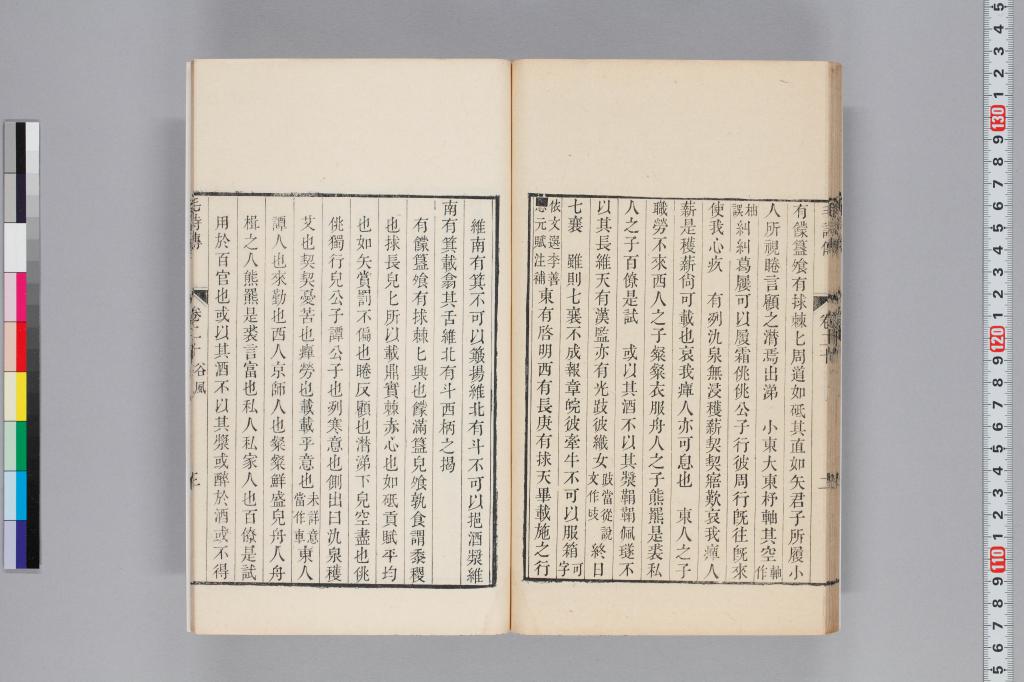 有饛簋飧有捄棘匕周道如砥其直如矢君子所履小
人所視睠言顧之潸焉出涕　小東大東杼軸其空軸作
柚誤糾糾葛屨可以履霜佻佻公子行彼周行旣往旣來
使我心疚　有冽氿泉無浸穫薪契契寤歎哀我癉人
薪是穫薪尙可載也哀我癉人亦可息也　東人之子
職勞不來西人之子粲粲衣服舟人之子熊羆是裘私
人之子百僚是試　或以其酒不以其漿鞙鞙佩璲不
以其長維天有漢監亦有光跂彼織女跂當從說文作𧿁終日
七襄　雖則七襄不成報章皖彼牽牛不可以服箱可字
依文選李善思元賦注補東有啓明西有長庚有捄天畢載施之行
維南有箕不可以簸揚維北有斗不可以挹酒漿維
南有箕載翕其舌維北有斗西柄之揭
有饛簋飧有捄棘匕興也饛滿簋皃飧孰食謂黍稷
也捄長皃匕所以載鼎實棘赤心也如砥貢賦平均
也如矢賞罰不偏也睠反顧也潸涕下皃空盡也佻
佻獨行皃公子譚公子也冽寒意也側出曰氿泉穫
艾也契契憂苦也癉勞也載載乎意也未詳意當作車東人
譚人也來勤也西人京師人也粲粲鮮盛皃舟人舟
楫之人熊羆是裘言富也私人私家人也百僚是試
用於百官也或以其酒不以其漿或醉於酒或不得
毛詩傳　卷二十　谷風